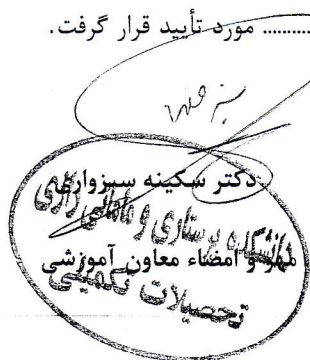 .......... مورد تأیید قرار گرفت.
دکتر سکینه سبزواری
مهر و امضاء معاون آموزشی
دانشکده پرستاری و مامائی رازی
تحصیلات تکمیلی